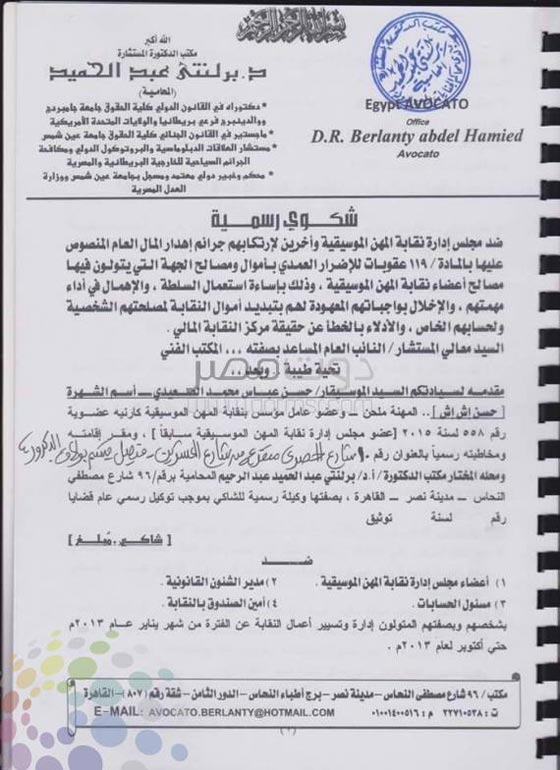 بسم الله الرحمن الرحيم
الله أكبر
مكتب الدكتورة المستشارة
د. برلنتى عبد الحميد
(المحامية)
• دكتوراه في القانون الدولي كلية الحقوق جامعة جامبردج
ووالدينبرج فرعي بريطانيا والولايات المتحدة الأمريكية
• ماجستير في القانون الجنائي كلية الحقوق جامعة عين شمس
• مستشار العلاقات الدبلوماسية والبروتوكول الدولي ومكافحة
الجرائم السياحية للخارجية البريطانية والمصرية
• محكم وخبير دولي معتمد ومسجل بجامعة عين شمس ووزارة
العدل المصرية
Egypt AVOCATO
Office
D.R. Berlanty abdel Hamied
Avocato
شكوي رسمية
ضد مجلس إدارة نقابة المهن الموسيقية وأخرين لإرتكابهم جرائم إهدار المال العام المنصوص
عليها بالمادة / ١١٩ عقوبات للإضرار العمدي بأموال ومصالح الجهة التي يتولون فيها
مصالح أعضاء نقابة المهن الموسيقية ، وذلك بإساءة استعمال السلطة ، والإهمال في أداء
مهمتهم ، والإخلال بواجباتهم المعهودة لهم بتبديد أموال النقابة لمصلحتهم الشخصية
ولحسابهم الخاص ، والأدلاء بالخطأ عن حقيقة مركز النقابة المالي .
السيد معالي المستشار / النائب العام المساعد بصفته ... المكتب الفني
تحية طيبة .. وبعد...
دوت مصر
مقدمه لسيادتكم السيد الموسيقار/ حسن عباس محمد الصعيدي – أسم الشهرة
[ حسن إش إش ] .. المهنة ملحن – وعضو عامل مؤسس بنقابة المهن الموسيقية كارنيه عضوية
رقم ٥٥٨ لسنة ٢٠١٥ [عضو مجلس إدارة نقابة المهن الموسيقية سابقاً] ، ومقر إقامته
ومخاطبته رسمياً بالعنوان رقم ١٠ شارع المصري متفرع من شارع العشرين فيصل قسم بولاق الدكرور
ومحله المختار مكتب الدكتورة / أ.د/ برلنتي عبد الحميد عبد الرحيم المحامية برقم/ ٩٦ شارع مصطفي
النحاس – مدينة نصر – القاهرة ، بصفتها وكيلة رسمية للشاكي بموجب توكيل رسمي عام قضايا
رقم لسنة توثيق
[ شاكي ، مُبلغ ]
ضد
١) أعضاء مجلس إدارة نقابة المهن الموسيقية . ٢) مدير الشئون القانونية .
٣) مسئول الحسابات . ٤) أمين الصندوق بالنقابة .
بشخصهم وبصفتهم المتولون إدارة وتسيير أعمال النقابة عن الفترة من شهر يناير عام ٢٠١٣م
حتي أكتوبر لعام ٢٠١٣م .
مكتب / ٩٦ شارع مصطفى النحاس – مدينة نصر – برج أطباء النحاس – الدور الثامن – شقة رقم (٨٠٧) – القاهرة
ت : ٢٢٧١٠٥٣٨ م : ٠١٠٠١٤٠٠٥١٦ E-MAIL: AVOCATO.BERLANTY@HOTMAIL.COM
(١)